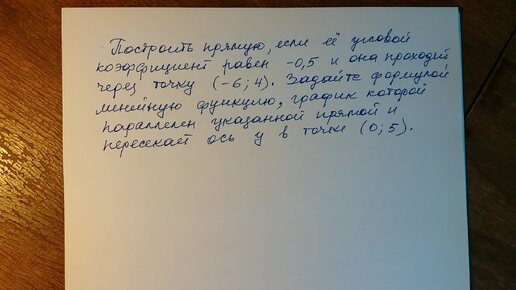 Построить прямую, если её угловой
коэффициент равен -0,5 и она проходит
через точку (-6; 4). Задайте формулой
линейную функцию, график которой
параллелен указанной прямой и
пересекает ось y в точке (0; 5).